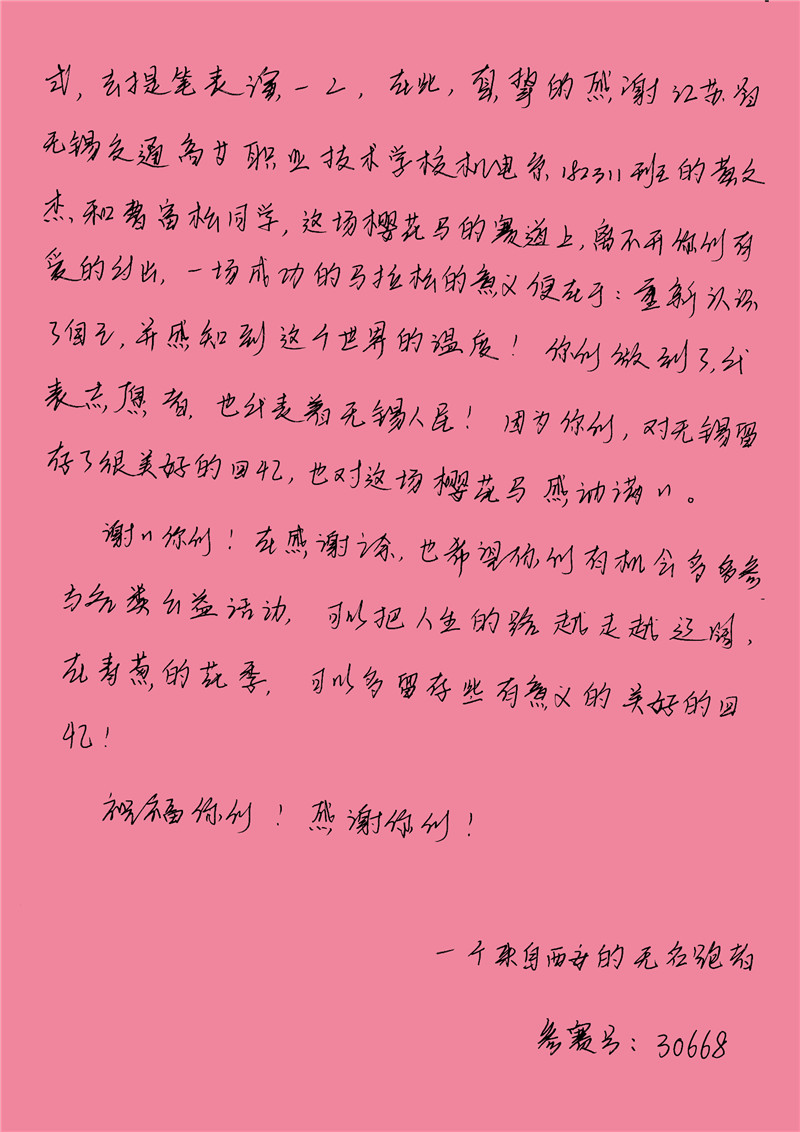 式，去提笔表演一二，在此，真挚的感谢江苏省
无锡交通高等职业技术学校机电系182311班的黄文
杰和费富松同学，这场樱花马的赛道上，离不开你们有
爱的付出，一场成功的马拉松的意义便在于：重新认识
了自己，并感知到这个世界的温度！你们做到了，代
表志愿者，也代表着无锡人民！因为你们，对无锡留
存了很美好的回忆，也对这场樱花马感动满〃。
谢〃你们！在感谢之余，也希望你们有机会多多参
与各类公益活动，可以把人生的路越走越辽阔，
在青葱的花季，可以多留存些有意义的美好的回
忆！
祝福你们！感谢你们！
一个来自西安的无名跑者
参赛号：30668